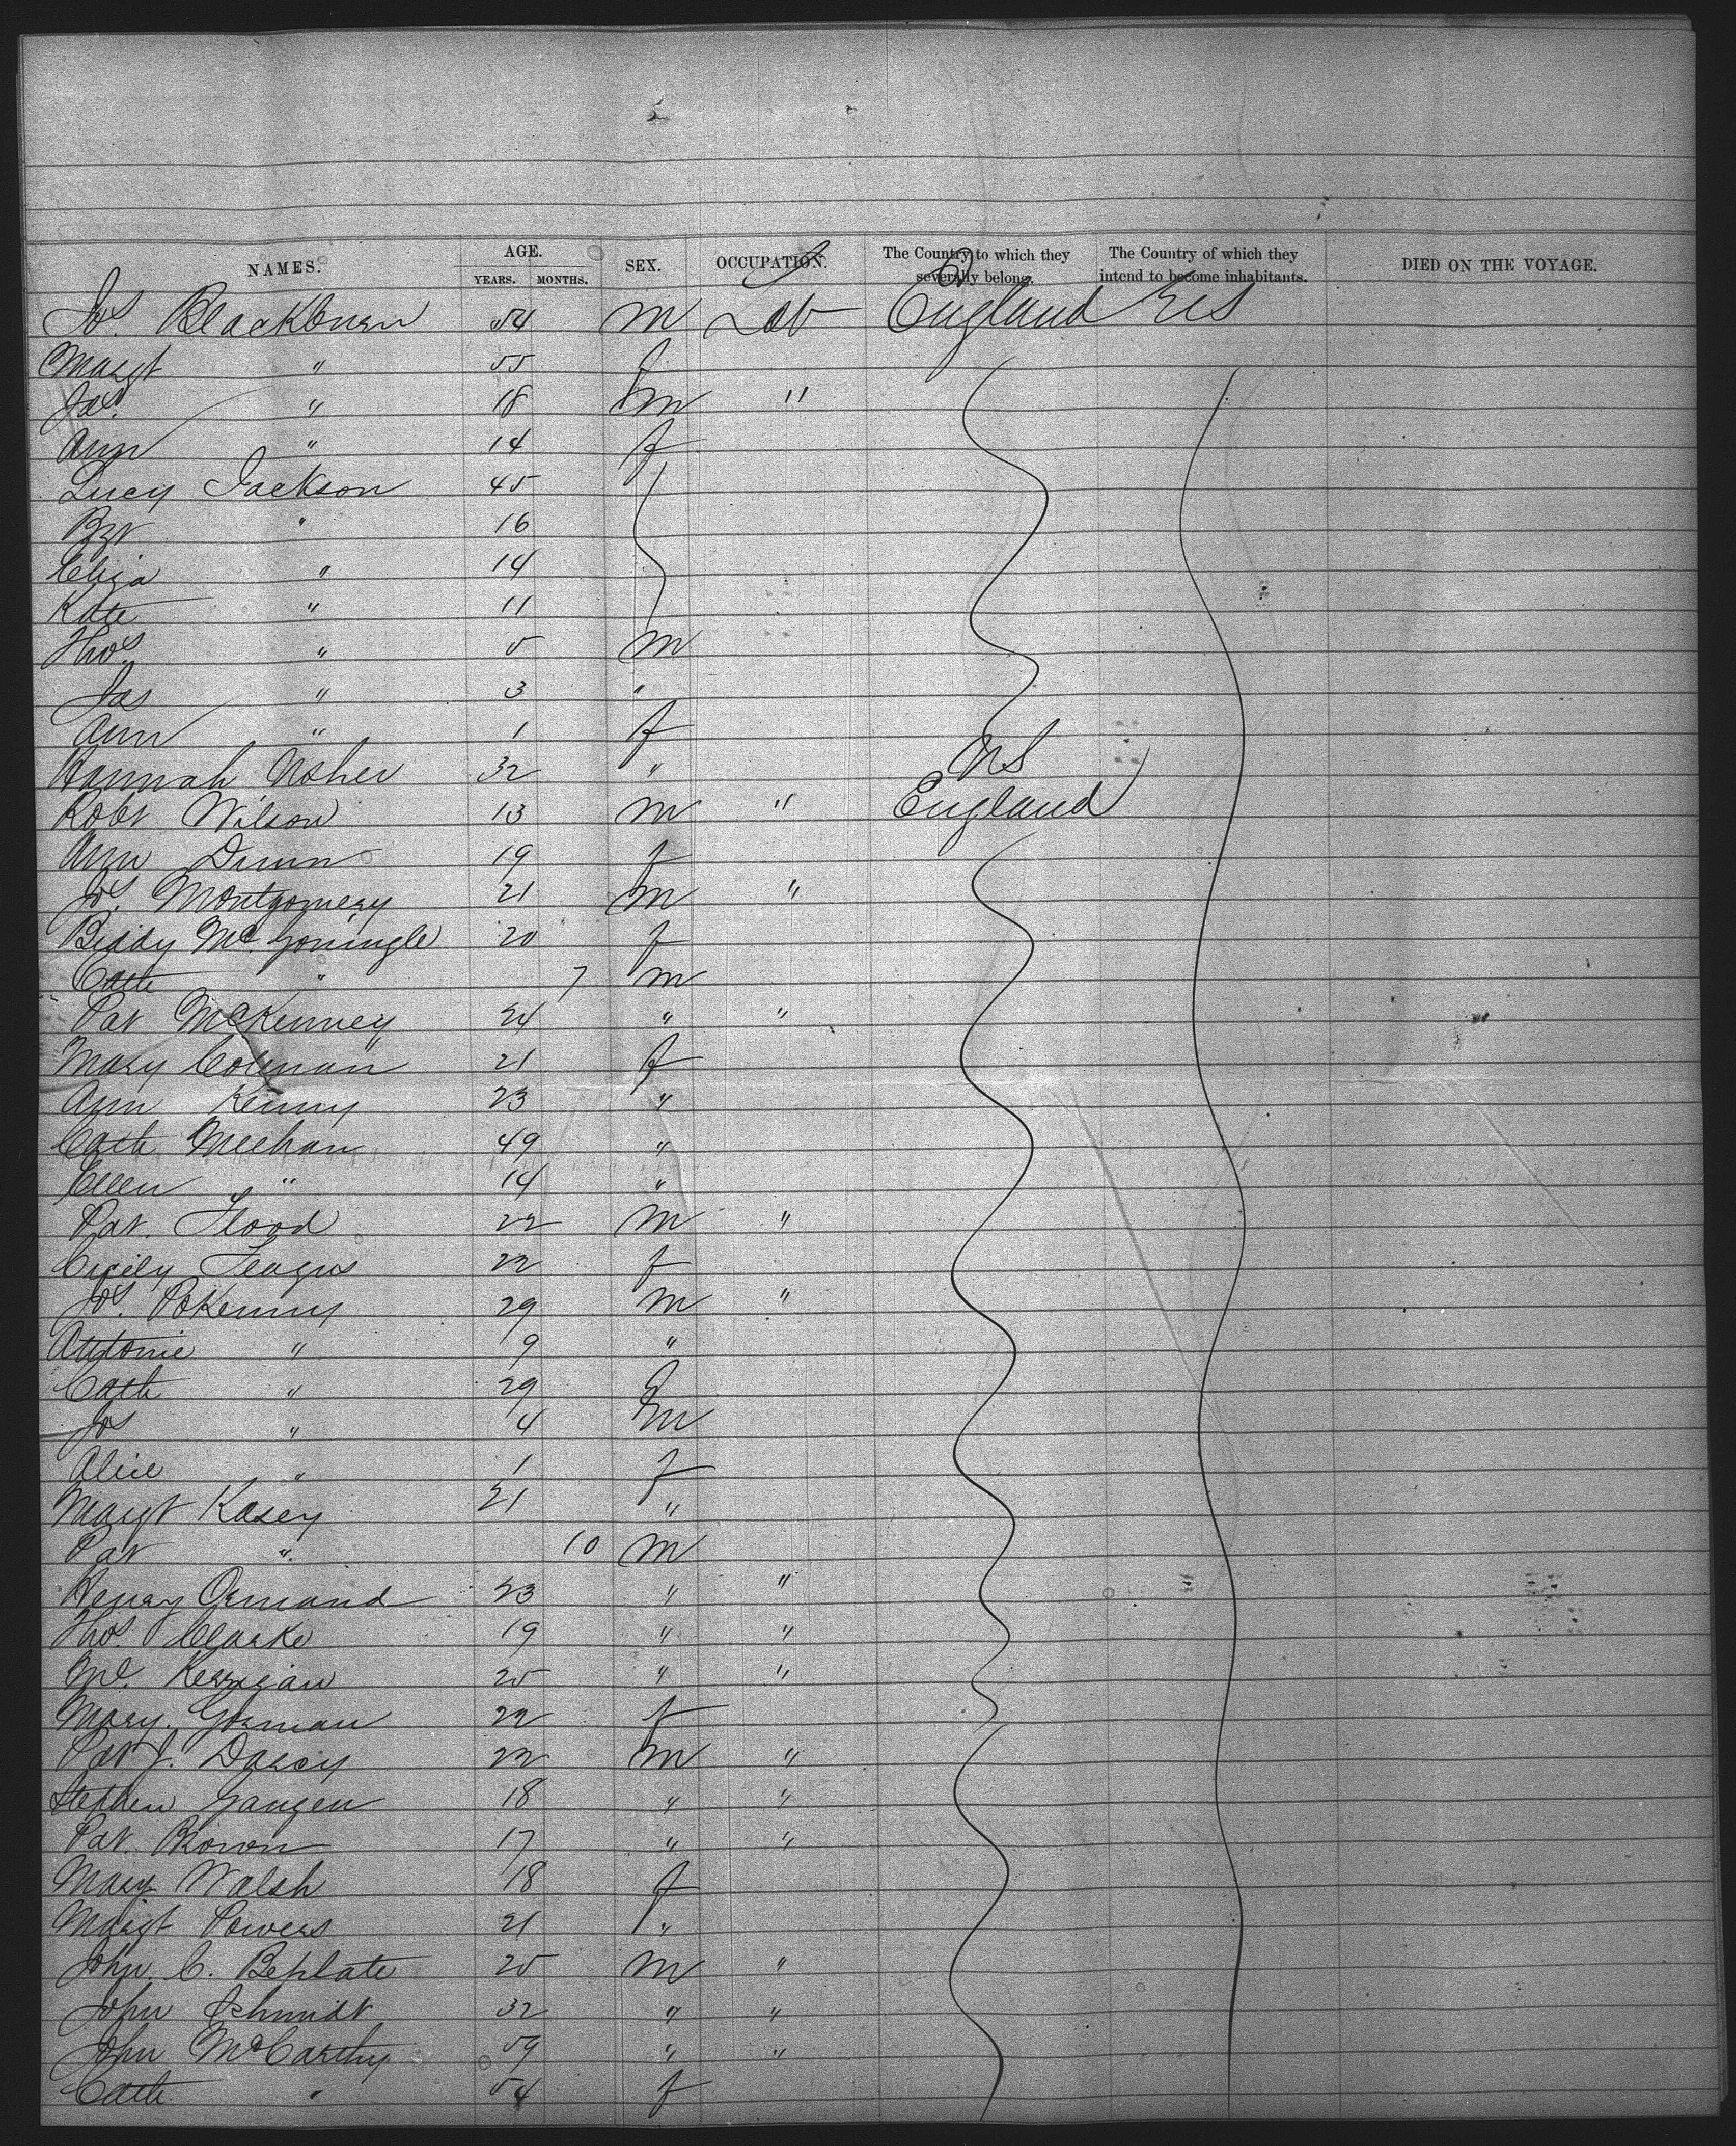 NAMES. AGE. YEARS. MONTHS. SEX. OCCUPATION. The Country to which they severally belong. The Country of which they intend to become inhabitants. DIED ON THE VOYAGE.
Jos. Blackburn 54 m Lab England US
Margt " 55 f
Jas. " 18 m "
Ann " 14 f
Lucy Jackson 45
Bgt " 16
Eliza " 14
Kate " 11
Thos. " 5 m
Jas " 3 "
Ann " 1 f
Hannah Usher 32 " US
Robt Wilson 13 m " England
Ann Dunn 19 f
Jos. Montgomery 21 m "
Biddy McGoningle 20 f
Cath " 7 m
Pat McKenney 24 " "
Mary Colman 21 f
Ann Kenny 23 "
Cath Meehan 49 "
Ellen " 14 "
Pat. Flood 22 m "
Cicily Teagus 22 f
Jos. 29 m "
Antonie " 9 "
Cath " 29 f
Jos " 4 m
Alice " 1 f
Margt Kasey 21 "
Pat " 10 m
Henry Ormand 23 " "
Thos. Clarke 19 " "
Ml. Kerrigan 25 " "
Mary Gorman 22 f
Pat J. Darcy 22 m "
Stephen 18 " "
Pat. Brown 17 " "
Mary Walsh 18 f
Margt Powers 21 "
John C. Beplate 25 m "
John Schmidt 32 " "
John McCarthy 59 " "
Cath " 54 f